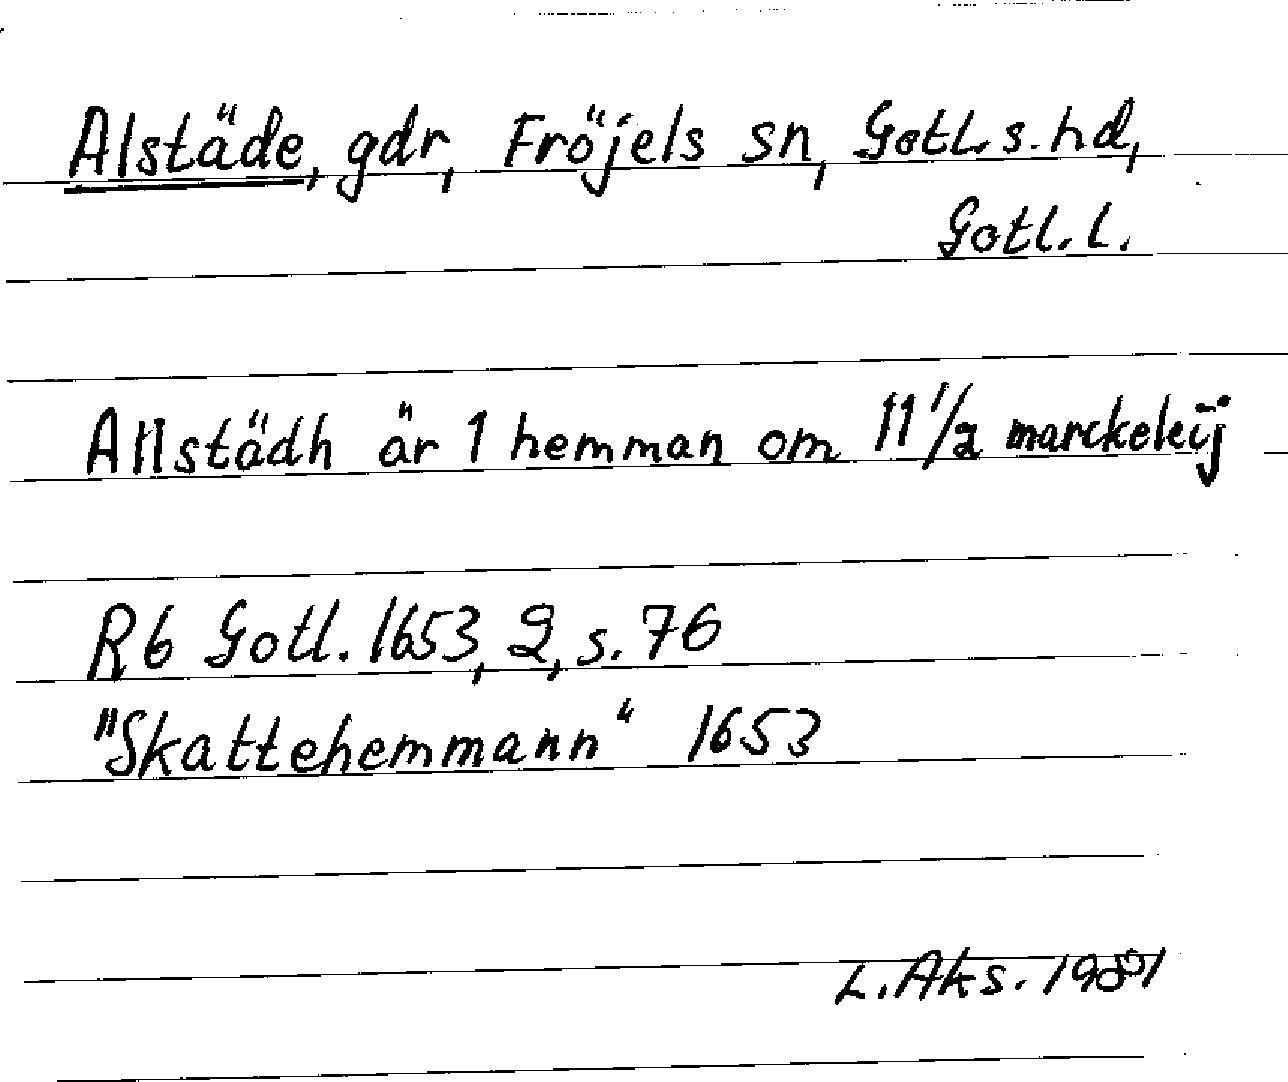 Alstäde, gdr, Fröjels sn, Gotl. s. hd,
Gotl. l.
Allstädh är 1 hemman om 11 1/2 marckeleij
R6 Gotl. 1653, 2, s. 76
"Skattehemmann" 1653
L. Aks. 1981